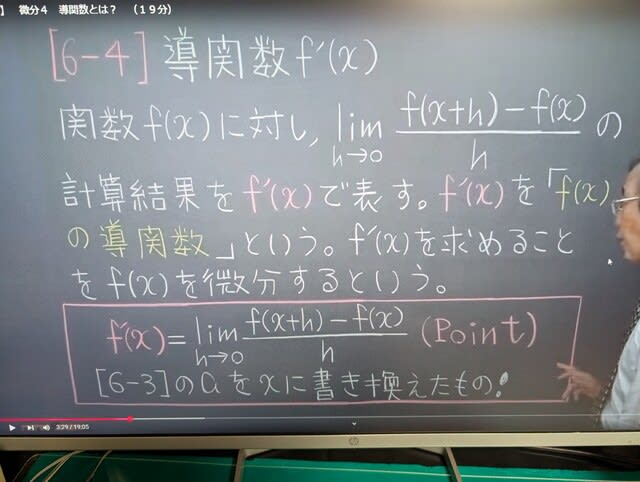 】 微分４ 導関数とは？ （１９分）
[6-4] 導関数 f'(x)
関数 f(x) に対し, lim h→0 f(x+h)-f(x) / h の
計算結果を f'(x) で表す。f'(x)を「f(x)
の導関数」という。f'(x)を求めること
をf(x)を微分するという。
f'(x) = lim h→0 f(x+h)-f(x) / h (Point)
[6-3]のaをxに書き換えたもの!
3:29 / 19:05
hp